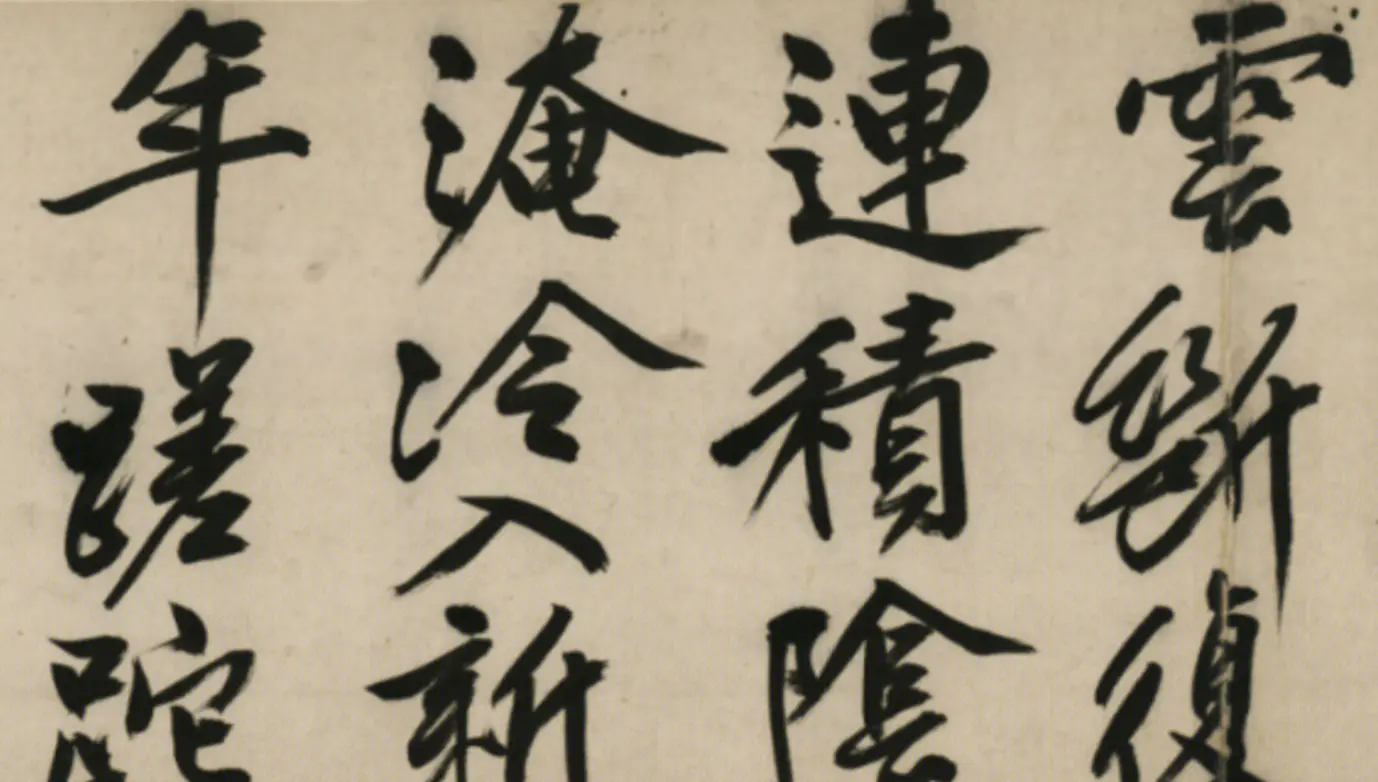 雲斷復
連積陰
淹冷入新
年蹉跎